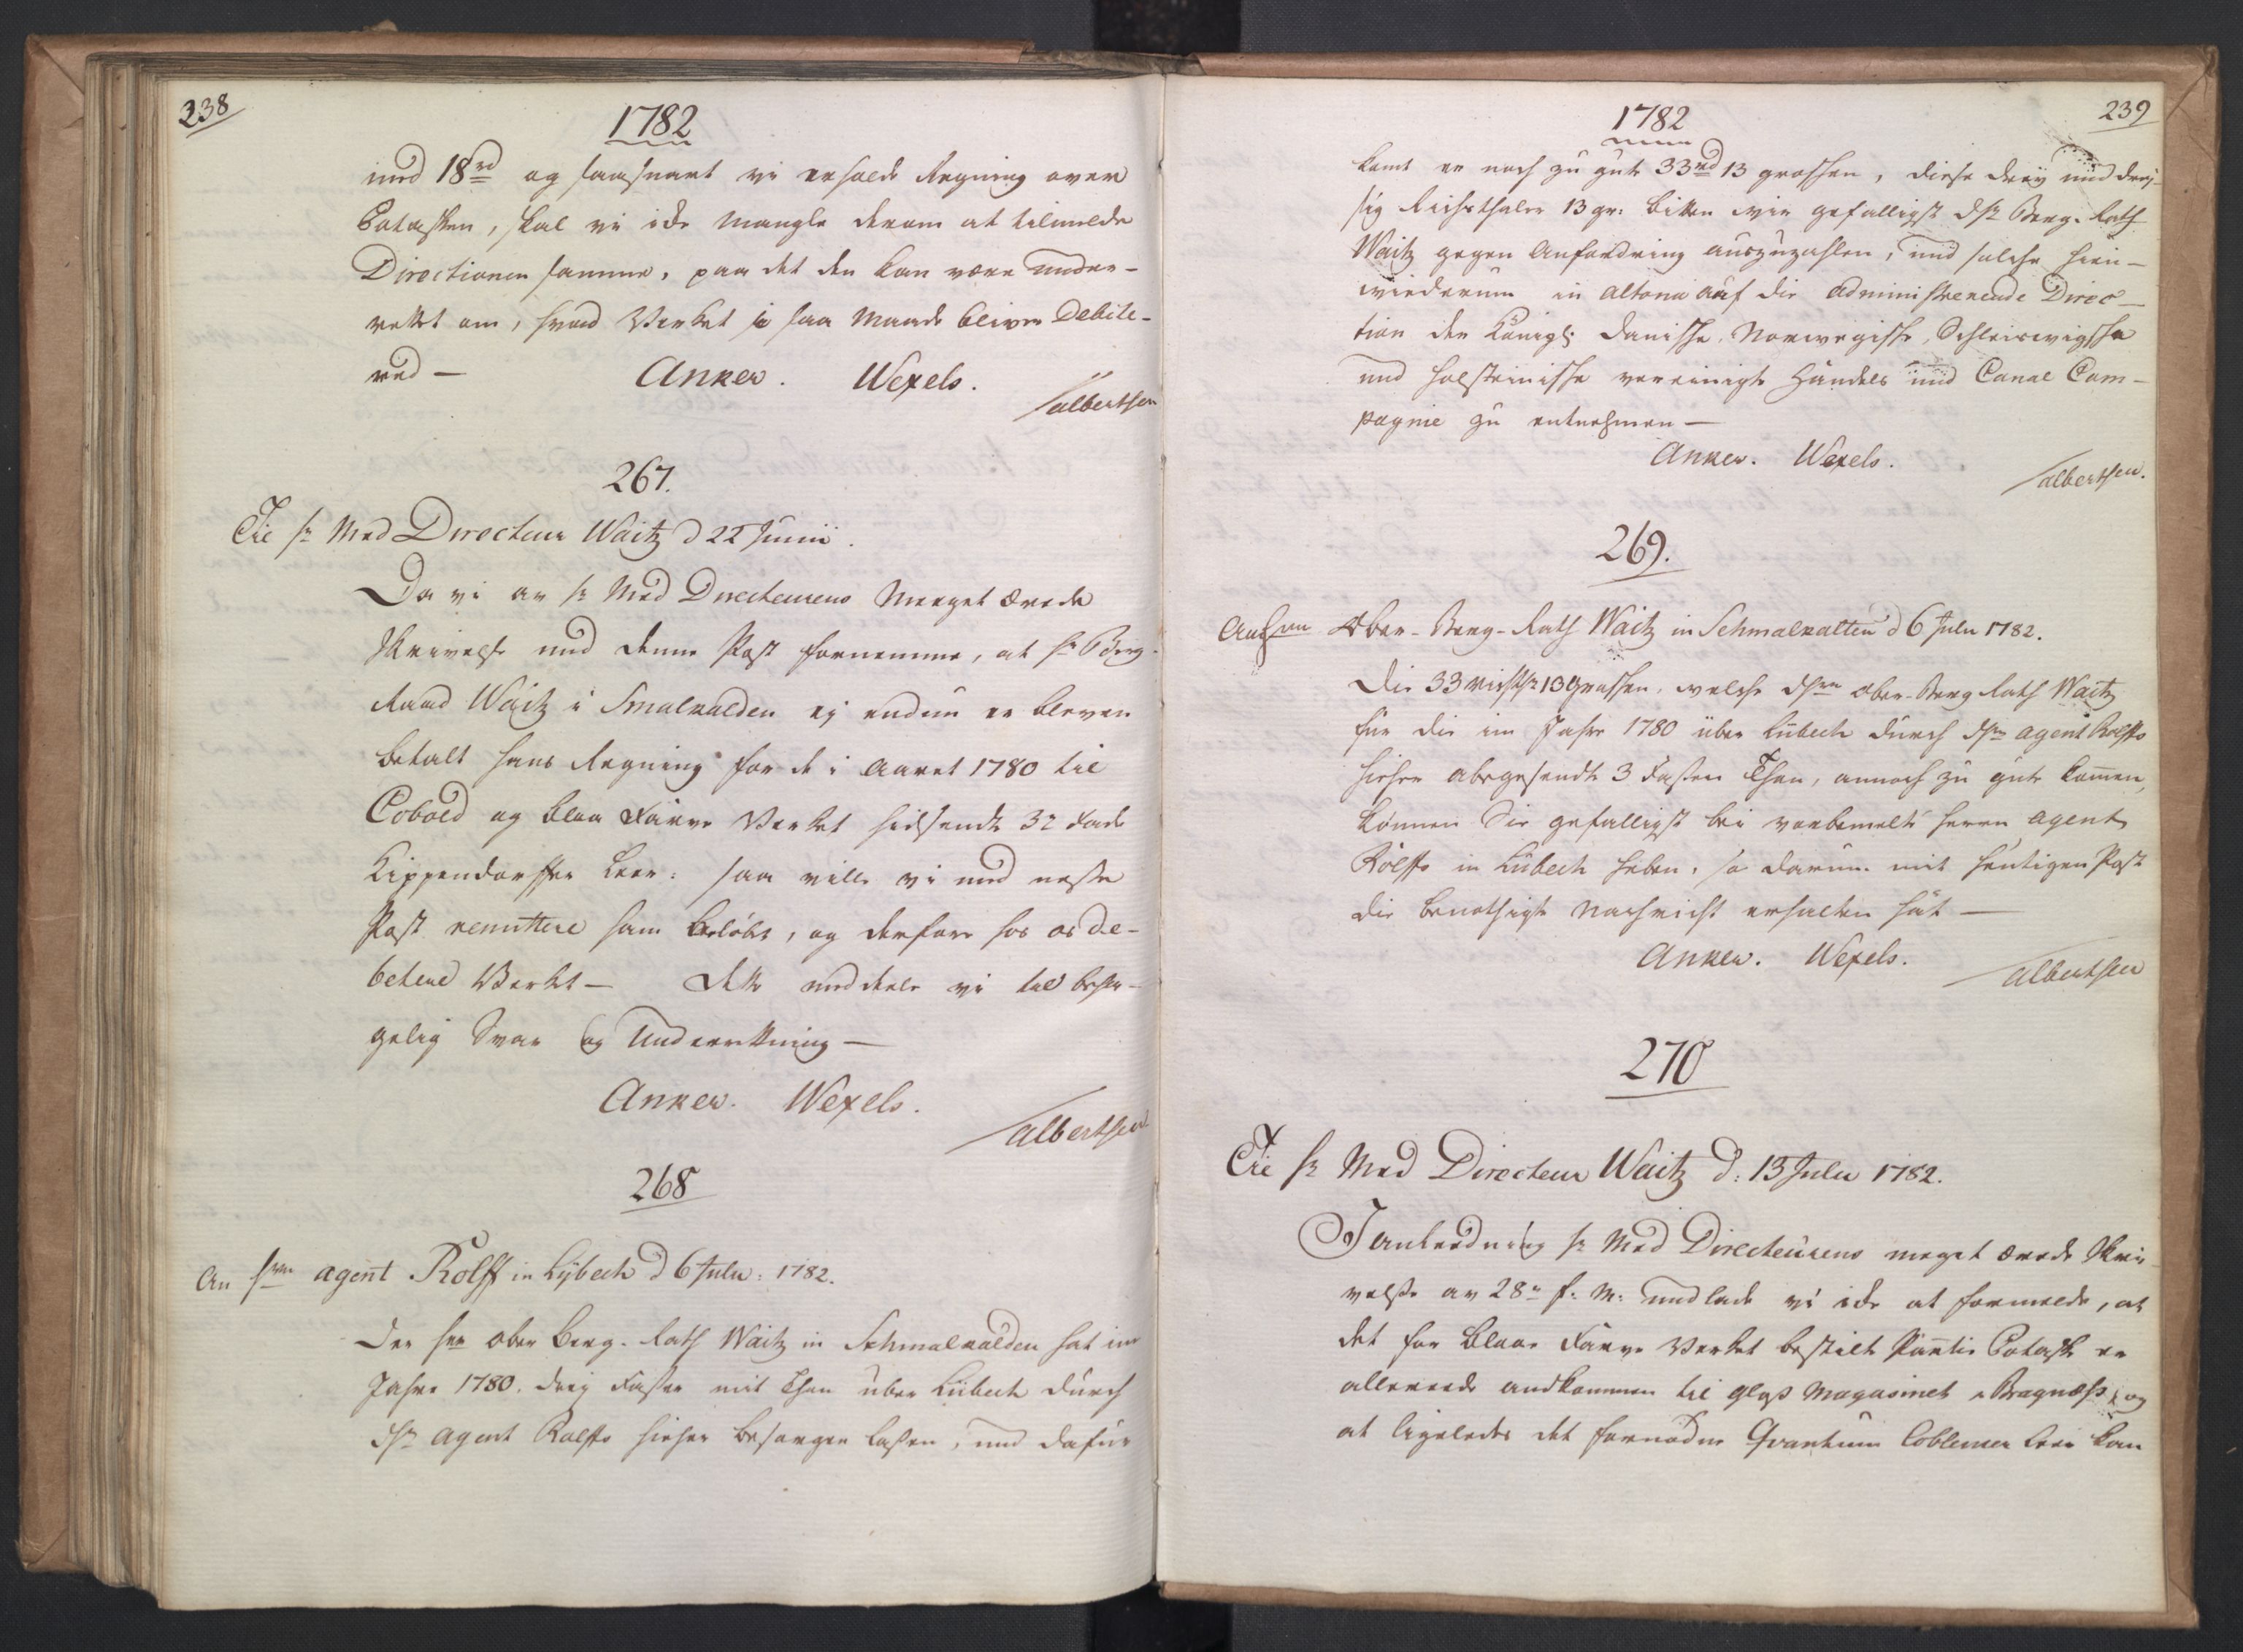 238
1782
med 18 rd og saasnart vi erholde Regning over
Potasken, skal vi icke mangle derom at tilmelde
Directionen samme, paa det den kan være under-
rettet om, hvad Verket i saa Maade bliver Debite-
red —
Anker. Wexels.
Albertsen
267.
Til Hr Med Directeur Waitz d 22 Junii.
Da vi av Hr Med Directeurens Meeget ærede
Skrivelse med denne Post fornemme, at Hr Berg-
Raad Waitz i Smalkalden ej endnu er bleven
betalt hans Regning for de i Aaret 1780 til
Cobold og blaa Farve Verket hidsendte 32 Fade
Kippendorffer Leer: saa ville vi med neste
Post remittere ham Beløbet, og derfore hos os de-
betere Verket — Dette meddele vi til behæ-
gelig Svar og Underretning —
Anker. Wexels.
Albertsen
268
An Hrn Agent Rolff in Lybech d 6 Julii: 1782.
Der Hr Ober Berg-Rath Waitz in Schmalkalden hat im
Jahre 1780. dreÿ Fasser mit Thon über Lübech durch
Hr Agent Rolffs hieher besorgen lassen, und dafür
239
1782
komt er noch zu gute 33 rd 13 groschen, diese dreÿ und drey-
sig Reichsthaler 13 gr: bitten wir gefälligst Hr Berg-Rath
Waitz gegen Anfordring auszuzahlen, und solche hin-
wiederum in Altona auf die administrerende Direc-
tion der Königl: Danische, Norwegische, Schleiswigsche
und Holsteinische vereinigte Handels und Canal Com-
pagnie zu entnehmen —
Anker. Wexels.
Albertsen.
269.
An Hrn Ober-Berg-Rath Waitz in Schmalkalten d 6 Julii 1782.
Die 33 Reichsthr 13 Groschen, welche Hrn Ober-Berg Rath Waitz
für die im Jahre 1780 über Lübech durch Hrn Agent Rolffs
hieher abgesendte 3 Fasser Thon, annoch zu gute kommen,
können Sie gefälligst bei vorbemelte Herrn Agent
Rolffs in Lübech heben, so darum mit heutigen Post
die benothigte Nachricht erhalten hat —
Anker. Wexels.
Albertsen
270
Til Hr Med Directeur Waitz d: 13 Julii 1782.
I anledning Hr Med Directeurens meget ærede Skri-
velse av 28de f: M: undlade vi icke at formelde, at
det for Blaae Farve Verket bestilte Partie Potaske er
allereede ankommen til Glas Magasinet i Bragnæss, og
at ligeledes det fornødne Qvantum Coblenser Leer kan